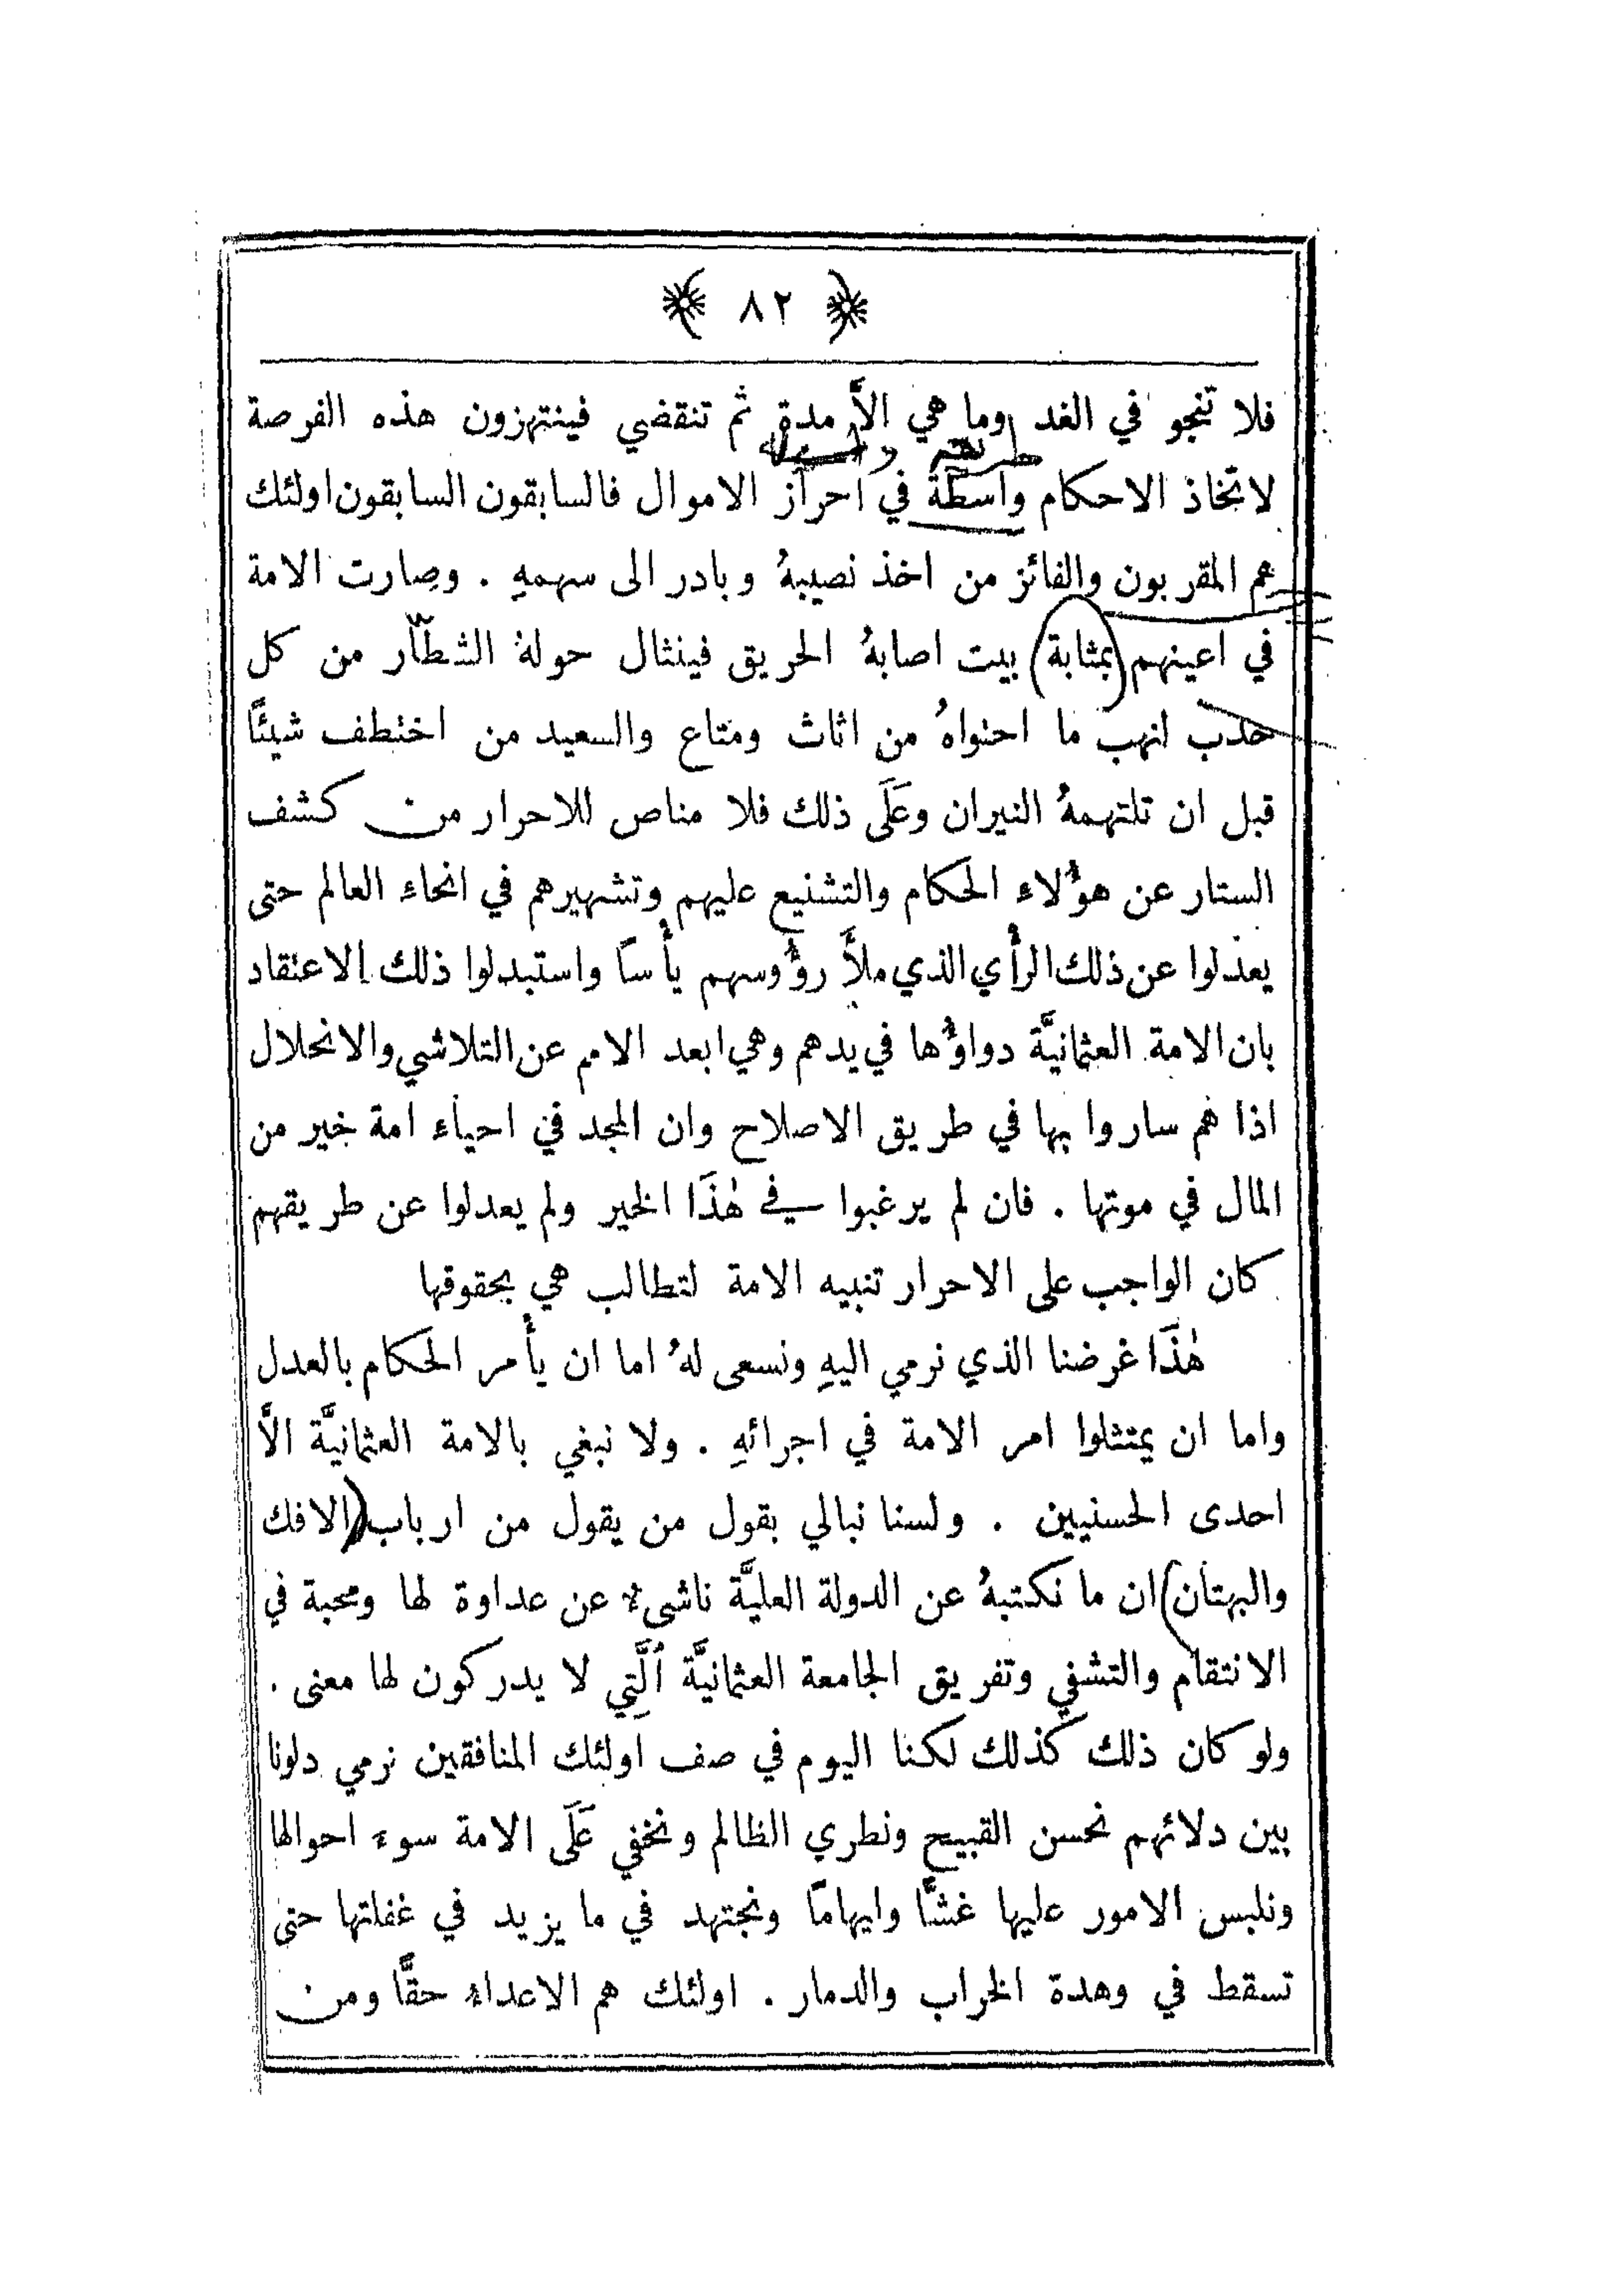 ﴿ ٨٢ ﴾
فلا تنجو في الغد وما هي الاَّ مدة ثم تنقضي فينتهزون هذه الفرصة
لاتخاذ الاحكام واسطة في احراز الاموال فالسابقون السابقون اولئك
هم المقربون والفائز من اخذ نصيبهُ وبادر الى سهمهِ . وصارت الامة
في اعينهم (بمثابة) بيت اصابهُ الحريق فينثال حولهُ الشطّار من كل
حدب لنهب ما احتواهُ من اثاث ومتاع والسعيد من اختطف شيئًا
قبل ان تلتهمهُ النيران وعَلَى ذلك فلا مناص للاحرار من كشف
الستار عن هؤلاء الحكام والتشنيع عليهم وتشهيرهم في انحاء العالم حتى
يعدلوا عن ذلك الرأي الذي ملأَ رؤوسهم يأسًا واستبدلوا ذلك الاعتقاد
بان الامة العثمانيَّة دواؤها في يدهم وهي ابعد الامم عن التلاشي والانحلال
اذا هم ساروا بها في طريق الاصلاح وان المجد في احياء امة خير من
المال في موتها . فان لم يرغبوا في هٰذَا الخير ولم يعدلوا عن طريقهم
كان الواجب على الاحرار تنبيه الامة لتطالب هي بحقوقها
هٰذَا غرضنا الذي نرمي اليهِ ونسعى لهُ اما ان يأمر الحكام بالعدل
واما ان يمتثلوا امر الامة في اجرائهِ . ولا نبغي بالامة العثمانيَّة الاَّ
احدى الحسنيين . ولسنا نبالي بقول من يقول من ارباب (الافك
والبهتان) ان ما نكتبهُ عن الدولة العليَّة ناشىء عن عداوة لها ومحبة في
الانتقام والتشفي وتفريق الجامعة العثمانيَّة ٱلَّتِي لا يدركون لها معنى .
ولو كان ذلك كذلك لكنا اليوم في صف اولئك المنافقين نرمي دلونا
بين دلائهم نحسن القبيح ونطري الظالم ونخفي عَلَى الامة سوء احوالها
ونلبس الامور عليها غشًّا وايهامًا ونجتهد في ما يزيد في غفلتها حتى
تسقط في وهدة الخراب والدمار . اولئك هم الاعداء حقًّا ومن